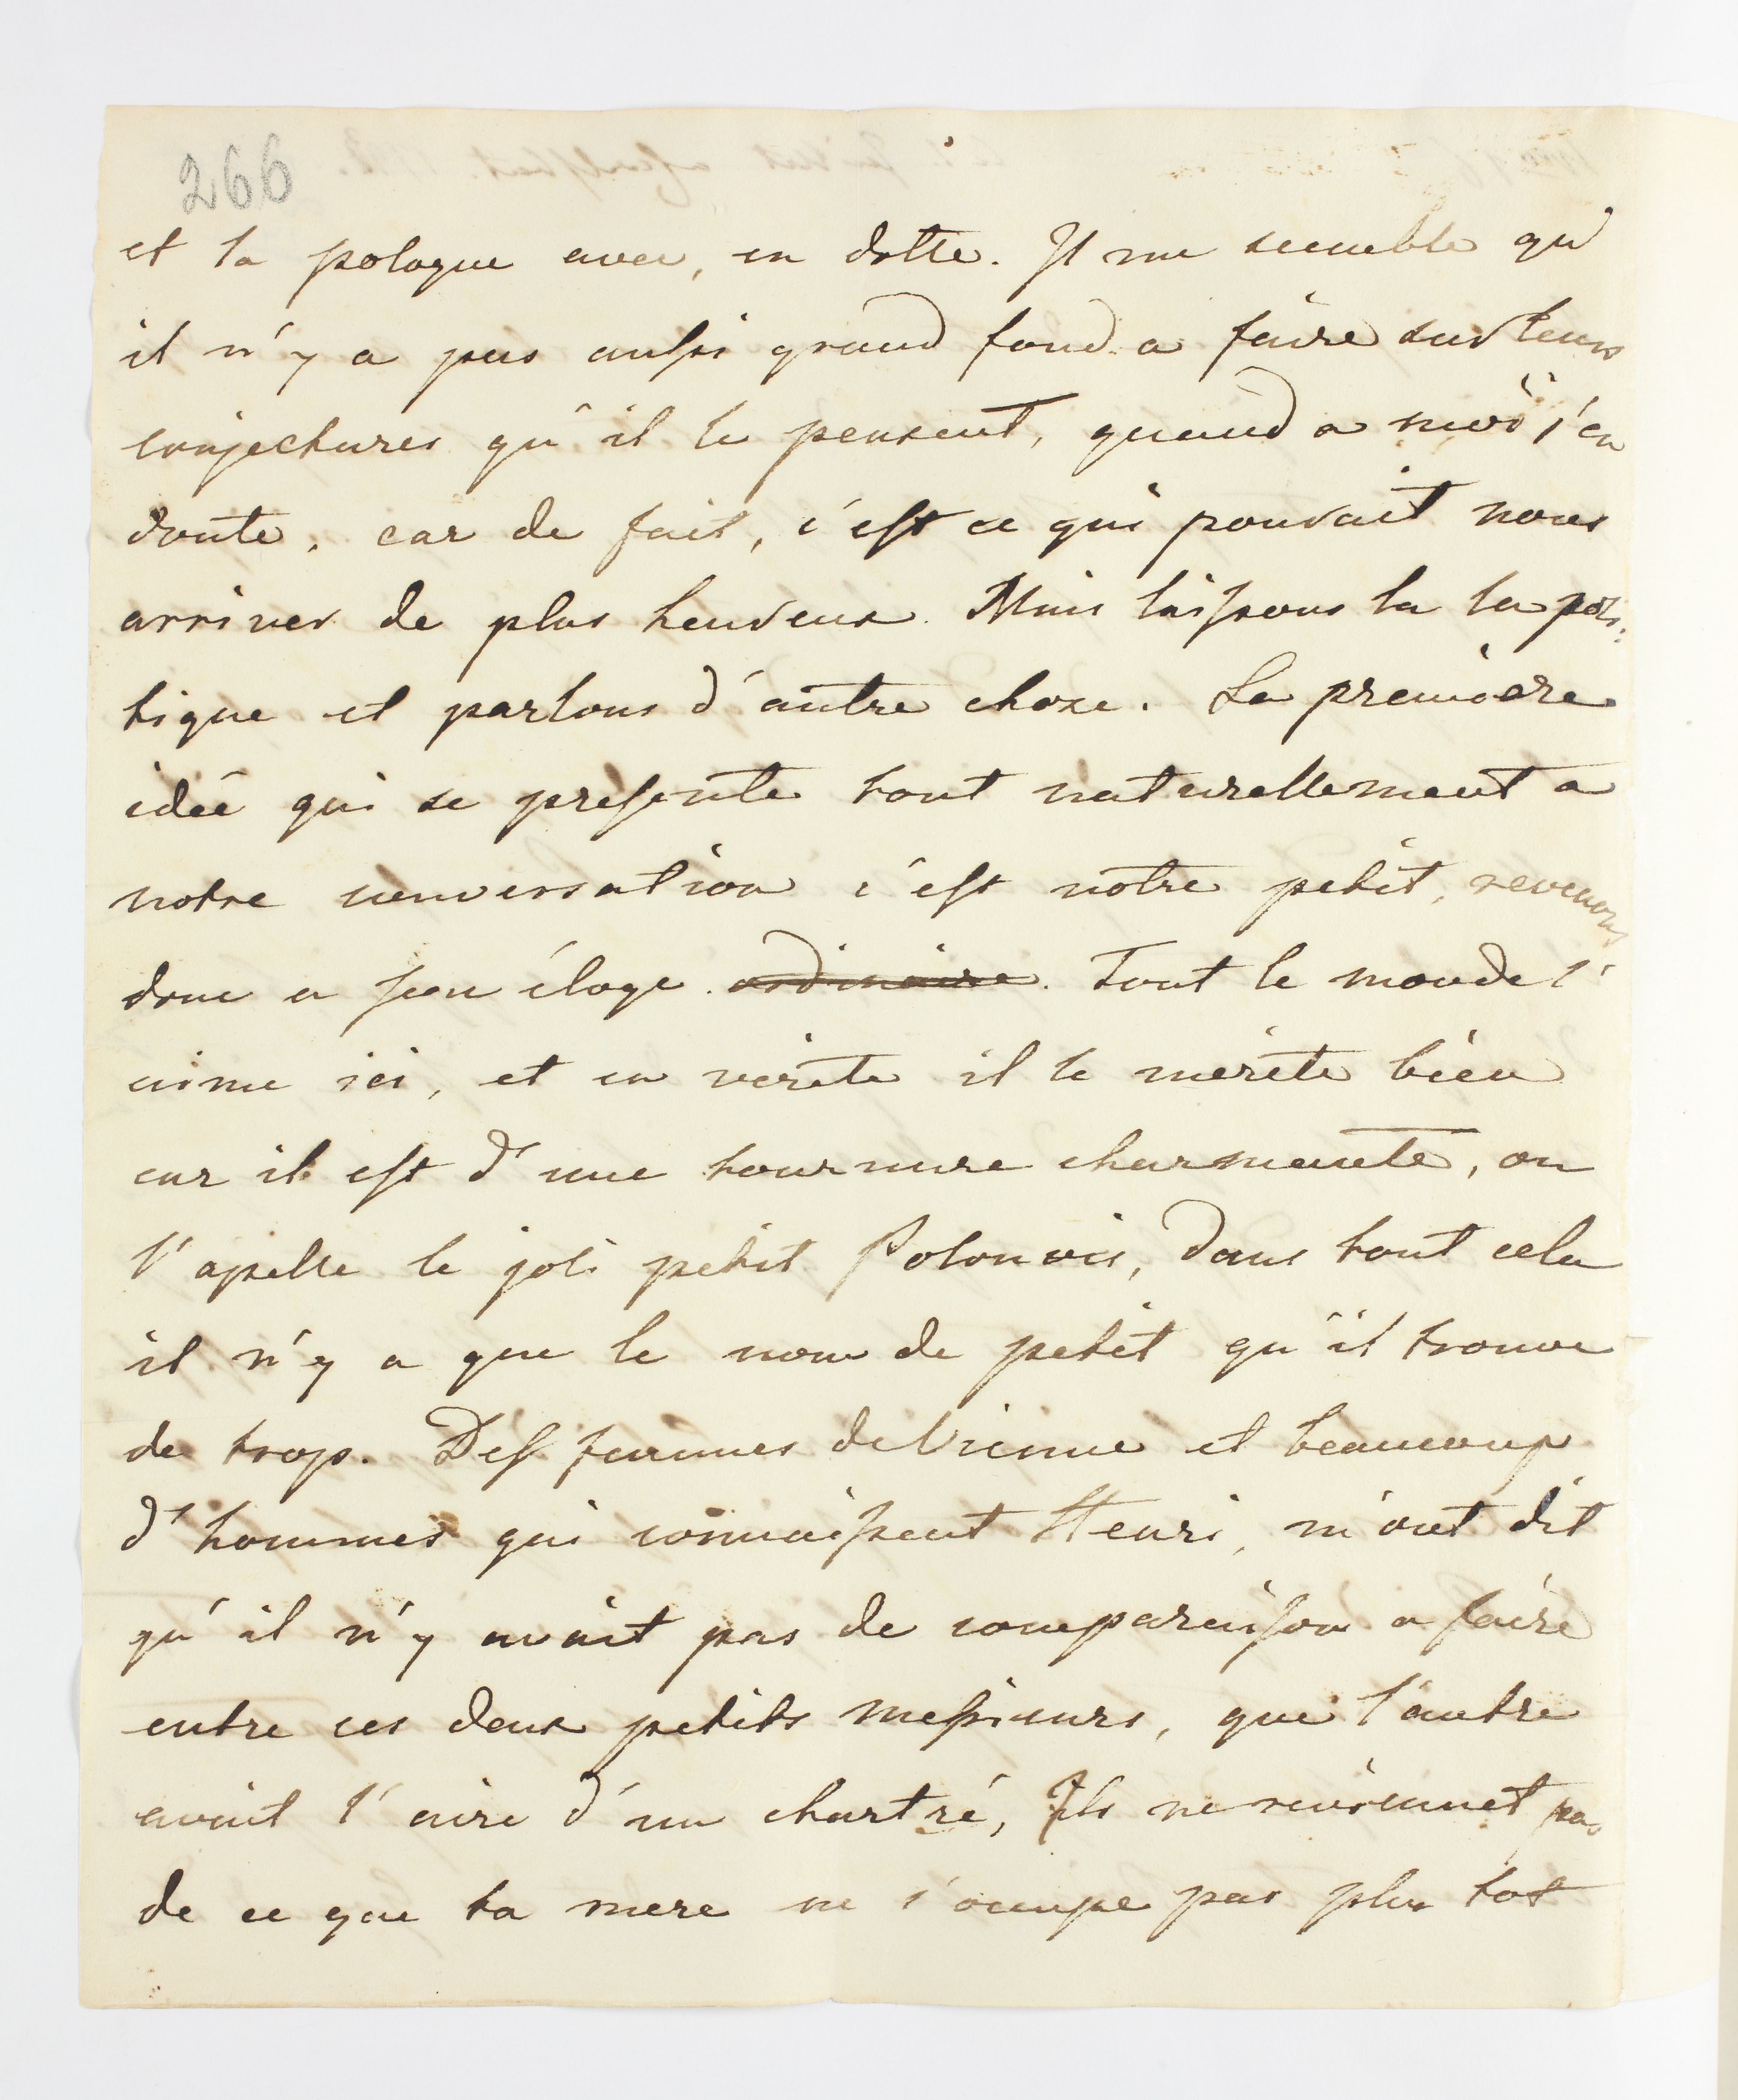 266
et la pologne avec, en dotte. Il me semble qu'
il n'y a pas aussi grand fond a faire sur leurs
conjectures qu'il le pensent, quand a moi j'en
doute, car de fait, c'est ce qui pouvait nous
arriver de plus heureux. Mais laissons la la poli:
tique et parlons d'autre chose. La premiere
idée qui se presente tout naturellement a
notre conversation c'est notre petit, revenons
donc a son éloge ordinaire. Tout le monde l'
aime ici, et en vérité il le mérite bien
car il est d'une tournure charmante, on
l'apelle le joli petit Polonais, dans tout cela
il n'y a que le nom de petit qu'il trouve
de trop. Des femmes de Vienne et beaucoup
d'hommes qui connaissent Henri, m'ont dit
qu'il n'y avait pas de comparaison a faire
entre ces deux petits messieurs, que l'autre
avait l'aire d'un chartré, Ils ne reviennet pas
de ce que ta mere ne s'ocupe pas plus tot